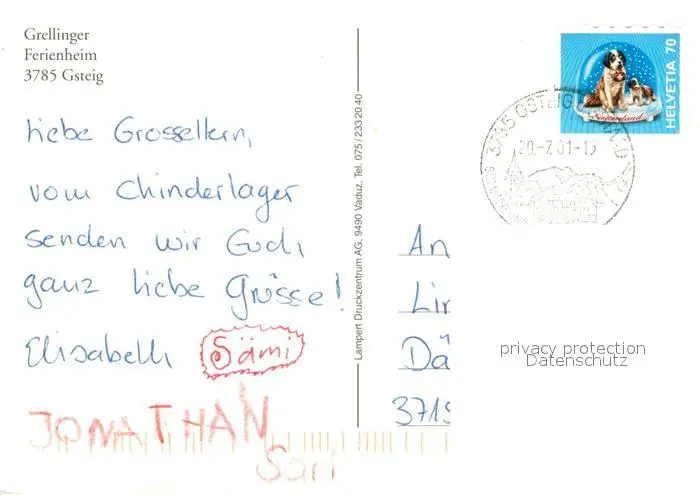 Grellinger
Ferienheim
3785 Gsteig
liebe Grosseltern,
vom Chinderlager
senden wir Euch
ganz liebe Grüsse!
Elisabeth Sämi
JONATHAN
Sari
Lampert Druckzentrum AG, 9490 Vaduz, Tel. 075 / 233 20 40
HELVETIA 70
3785 GSTEIG
20.-7.01-15
An
Lin
Dä
3715
privacy protection
Datenschutz